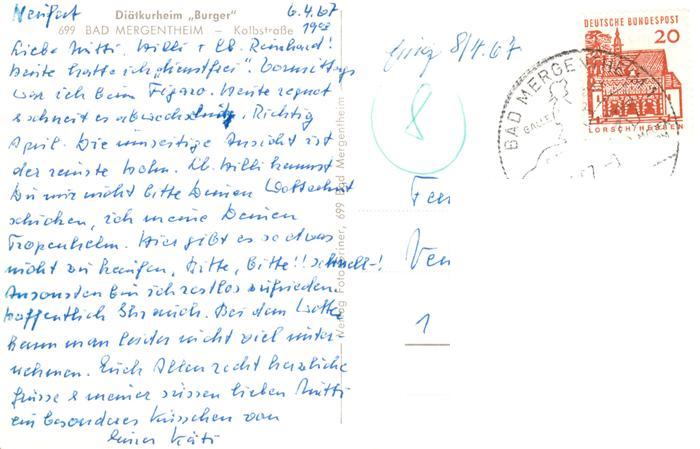 Neufert
6.4.67
19 00
Diätkurheim „Burger"
699 BAD MERGENTHEIM – Kolbstraße
Liebe Mutti, Willi + lb. Reinhard!
Heute hatte ich „dienstfrei". Vormittags
war ich beim Figaro. Heute regnet
& schneit es abwechselnd. Richtig
April. Die umseitige Ansicht ist
der reinste Hohn. Lb. Willi kannst
Du mir nicht bitte Deinen
schicken, ich meine Deinen
Tropenhelm. Hier gibt es so etwas
nicht zu kaufen, Bitte, Bitte!! schnell-!
Ansonsten bin ich restlos zufrieden.
hoffentlich Ihr auch. Bei dem Wetter
kann man leider nicht viel unter-
nehmen. Euch Allen recht herzliche
Grüsse & meiner süssen lieben Mutti
ein besonderes Küsschen von
Eurer Käti
Verlag Foto 699 Bad Mergentheim
eing 8/4.67
8
Fen
Ven
1
DEUTSCHE BUNDESPOST
20
LORSCH/HESSEN
BAD MERGENTHEIM